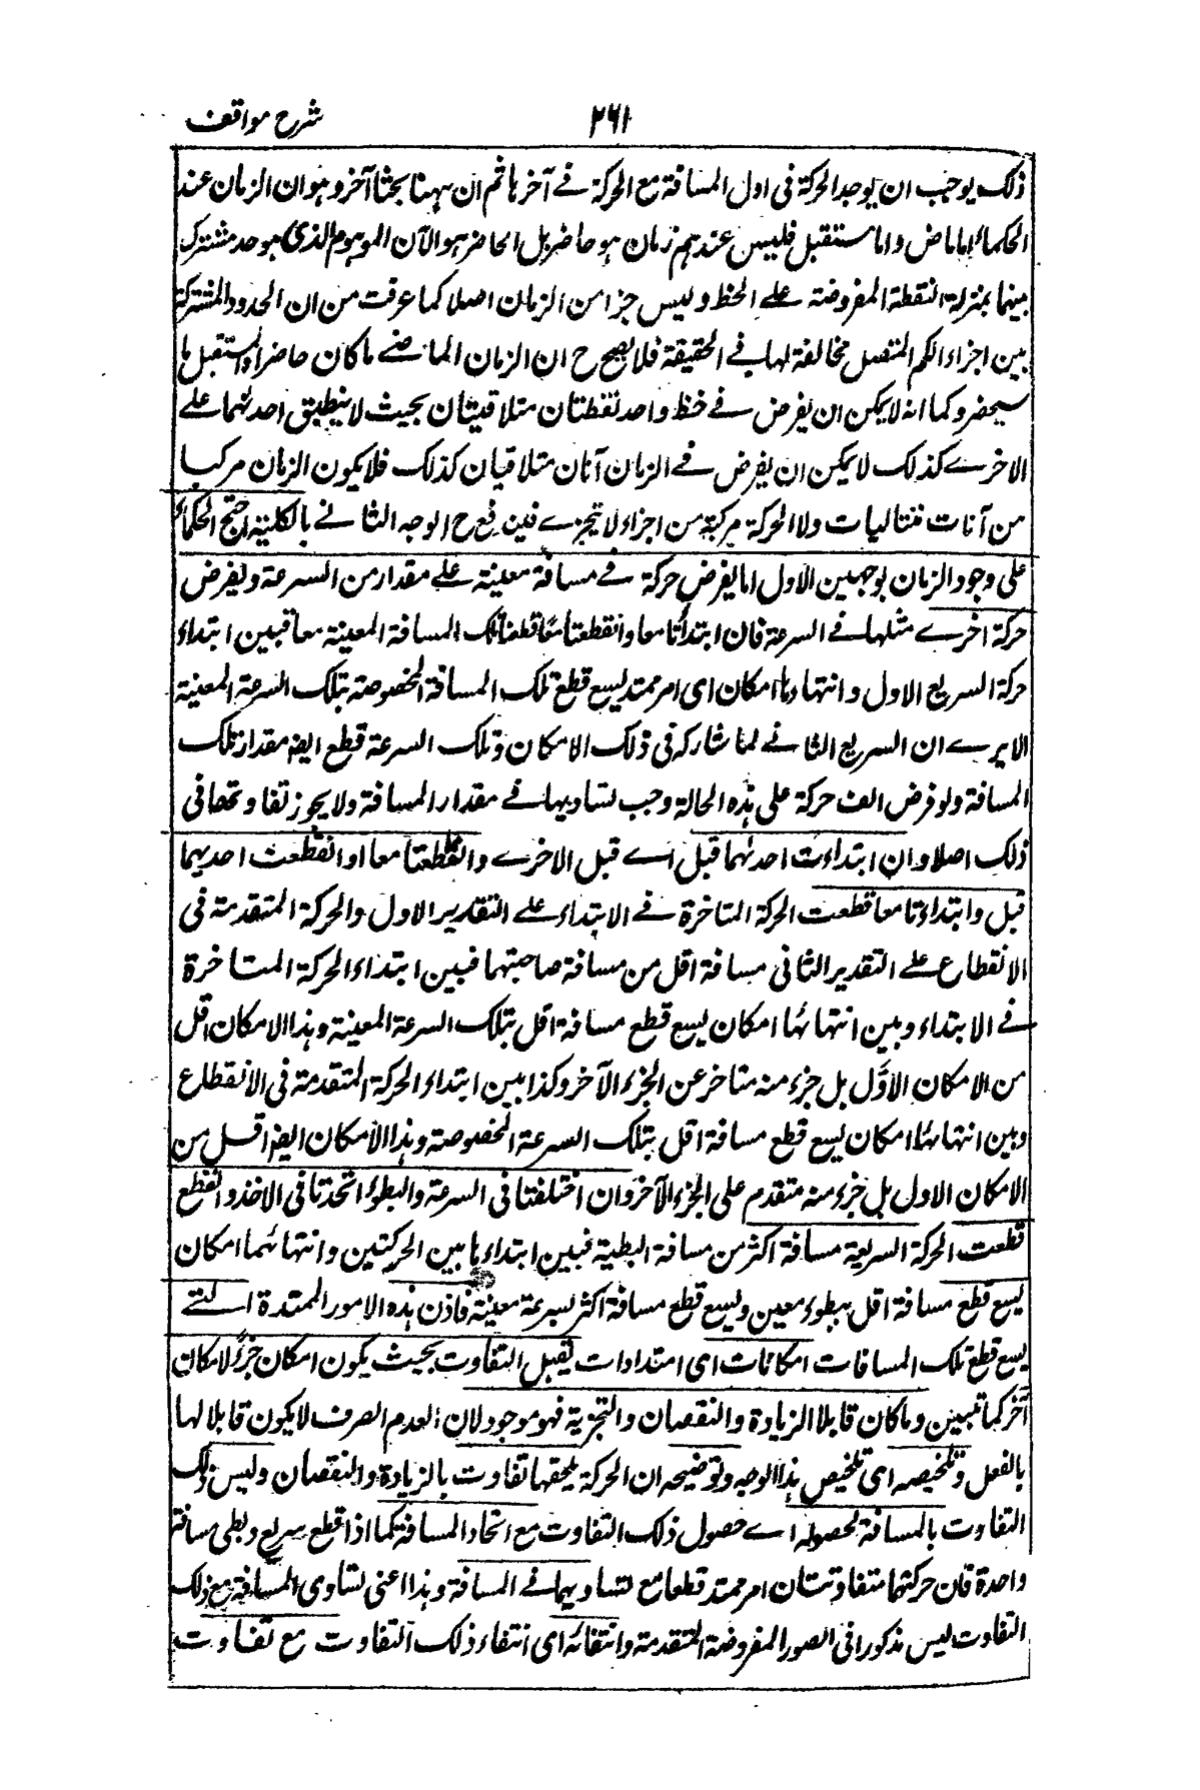 شرح مواقف
۲۶۱
ذلك يوجب ان يوجد الحركة فى اول المسافة مع الحركة فے آخرها ثم ان ههنا بحثا آخر وهو ان الزمان عند
الحكماء اما ماض واما مستقبل فليس عندهم زمان هو حاضر بل الحاضر هو الآن الموهوم الذى هو حد مشترك
بينهما بمنزلة النقطة المفروضة علے الخط وليس جزا من الزمان اصلا كما عرفت من ان الحدود المشتركة
بين اجزاء الكم المتصل مخالفة لها فے الحقيقة فلا يصح ح ان الزمان الماضے ما كان حاضرا والمستقبل ما
سيحضر وكما انه لا يمكن ان يفرض فے خط واحد نقطتان متلاقيتان بحيث لا ينطبق احدٰهما علے
الاخرے كذلك لا يمكن ان يفرض فے الزمان آنان متلاقيان كذلك فلا يكون الزمان مركبا
من آنات متتاليات ولا الحركة مركبة من اجزاء لا تتجزے فيندفع ح الوجه الثانے بالكلية احتج الحكماء
على وجود الزمان بوجهين الاول انا يفرض حركة فے مسافة معينة علے مقدار من السرعة ويفرض
حركة اخرے مثلها فے السرعة فان ابتدأتا معا وانقطعتا معا قطعتا تلك المسافة المعينة معا فبين ابتداء
حركة السريع الاول وانتهاءها امكان اى امر ممتد يسع قطع تلك المسافة المخصوصة بتلك السرعة المعينة
الا يرے ان السريع الثانے لما شاركه فى ذلك الامكان وتلك السرعة قطع ايضا مقدار تلك
المسافة ولو فرض الف حركة على هذه الحالة وجب تساويها فے مقدار المسافة ولا يجوز تفاوتها فى
ذلك اصلا وان ابتداءت احدٰهما قبل اے قبل الاخرے وانقطعتا معا او انقطعت احديهما
قبل وابتداءتا معا قطعت الحركة المتاخرة فے الابتداء علے التقدير الاول والحركة المتقدمة فى
الانقطاع علے التقدير الثانى مسافة اقل من مسافة صاحبتها فبين ابتداء الحركة المتاخرة
فے الابتداء وبين انتهائها امكان يسع قطع مسافة اقل بتلك السرعة المعينة وهذا الامكان اقل
من الامكان الاوّل بل جزء منه متاخر عن الجزء الآخر وكذا بين ابتداء الحركة المتقدمة فى الانقطاع
وبين انتهائها امكان يسع قطع مسافة اقل بتلك السرعة المخصوصة وهذا الامكان ايضا اقل من
الامكان الاول بل جزء منه متقدم على الجزء الآخر وان اختلفتا فى السرعة والبطوء اتحدتا فى الاخذ والقطع
قطعت الحركة السريعة مسافة اكثر من مسافة البطية فبين ابتداء ما بين الحركتين وانتهائهما امكان
يسع قطع مسافة اقل ببطوء معين ويسع قطع مسافة اكثر بسرعة معينة فاذن هذه الامور الممتدة التے
يسع قطع تلك المسافات امكانات اى امتدادات يقبل التفاوت بحيث يكون امكان جزءً لامكان
آخر كما تبين وما كان قابلا الزيادة والنقصان والتجزية فهو موجود لان العدم الصرف لا يكون قابلا لها
بالفعل وتلخيصه اى تلخيص هذا الوجه وتوضيحه ان الحركة يلحقها تفاوت بالزيادة والنقصان وليس ذلك
التفاوت بالمسافة لحصوله اے حصول ذلك التفاوت مع اتحاد المسافة كما اذا قطع سريع وبطى مسافة
واحدة فان حركتهما متفاوتتان امر ممتد قطعا مع تساويهما فے المسافة وهذا اعنى تساوى المسافة مع ذلك
التفاوت ليس مذكورا فى الصور المفروضة المتقدمة وانتفائه اى انتفاء ذلك التفاوت مع تفاوت